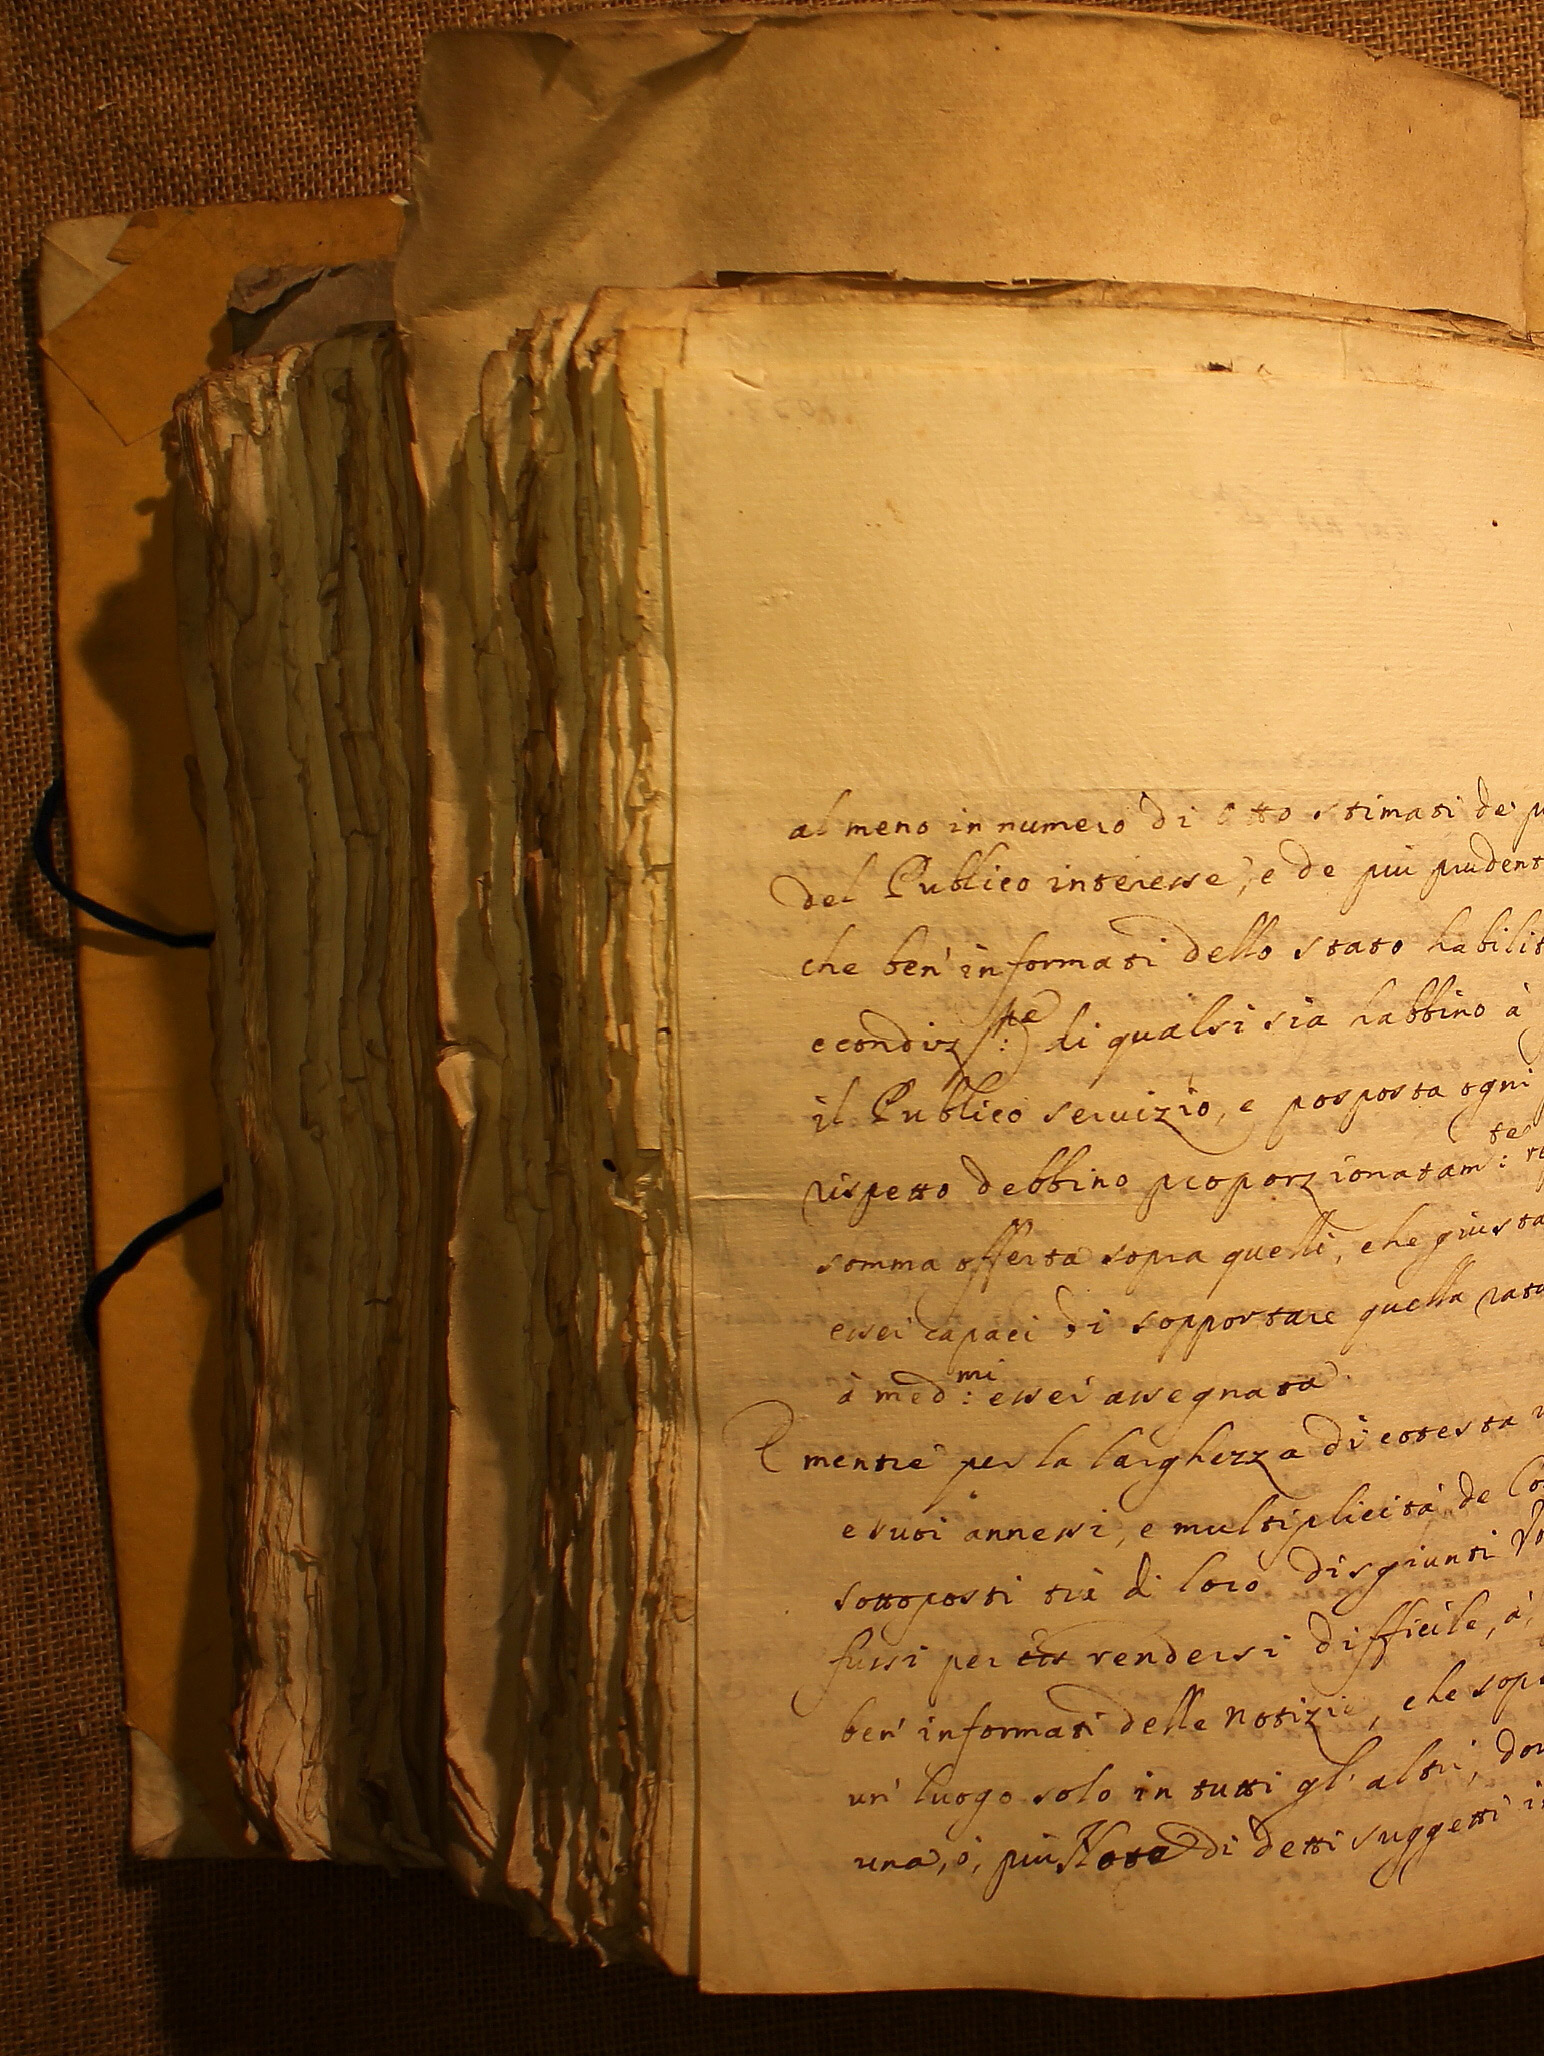 al meno in numero di otto stimati de
del Publico interesse, e de più prudent
che ben' informati dello stato habilit
e condiz:ne di qualsisia habbino à
il Publico servizio, e posposta ogni
rispetto debbino proporzionatam:te
somma offerta sopra quelli, che giusta
esser capaci di sopportare quella rata
à med:mi esser assegnata.
E mentre per la larghezza di cotesta
e suoi annessi, e multiplicità de Co
sottoposti trà di loro disgiunti
fussi per rendersi difficile, à,
ben' informati delle notizie, che sop
un' luogo solo in tutti gl' altri, do
una, ò, più Note di detti suggetti i